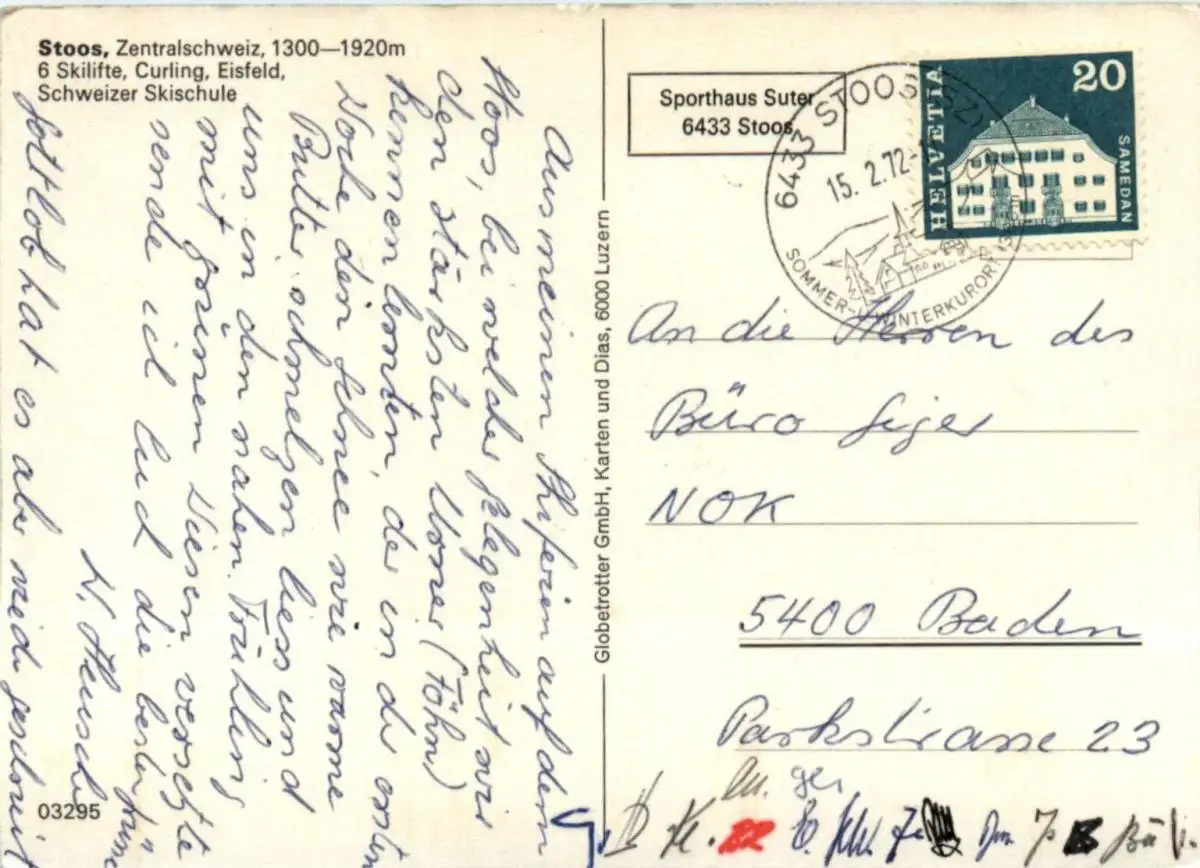 Stoos, Zentralschweiz, 1300—1920m
6 Skilifte, Curling, Eisfeld,
Schweizer Skischule
Aus meinen Skiferien auf dem
Stoos, bei welcher Gelegenheit wir
den stärksten Urner (Föhn)
kennen lernten, der in der ersten
Woche den Schnee wie warme
Butter schmelzen liess und
uns in den nahen Frühling
mit grünen Wiesen versetzte
sende ich Euch die besten Grüsse
Gottlob hat es aber wieder geschneit
03295
Globetrotter GmbH, Karten und Dias, 6000 Luzern
Sporthaus Suter
6433 Stoos
6433 STOOS (SZ)
15. 2. 72
SOMMER- U. WINTERKURORT
HELVETIA
20
SAMEDAN
An die Herren des
Büro
NOK
5400 Baden
Parkstrasse 23